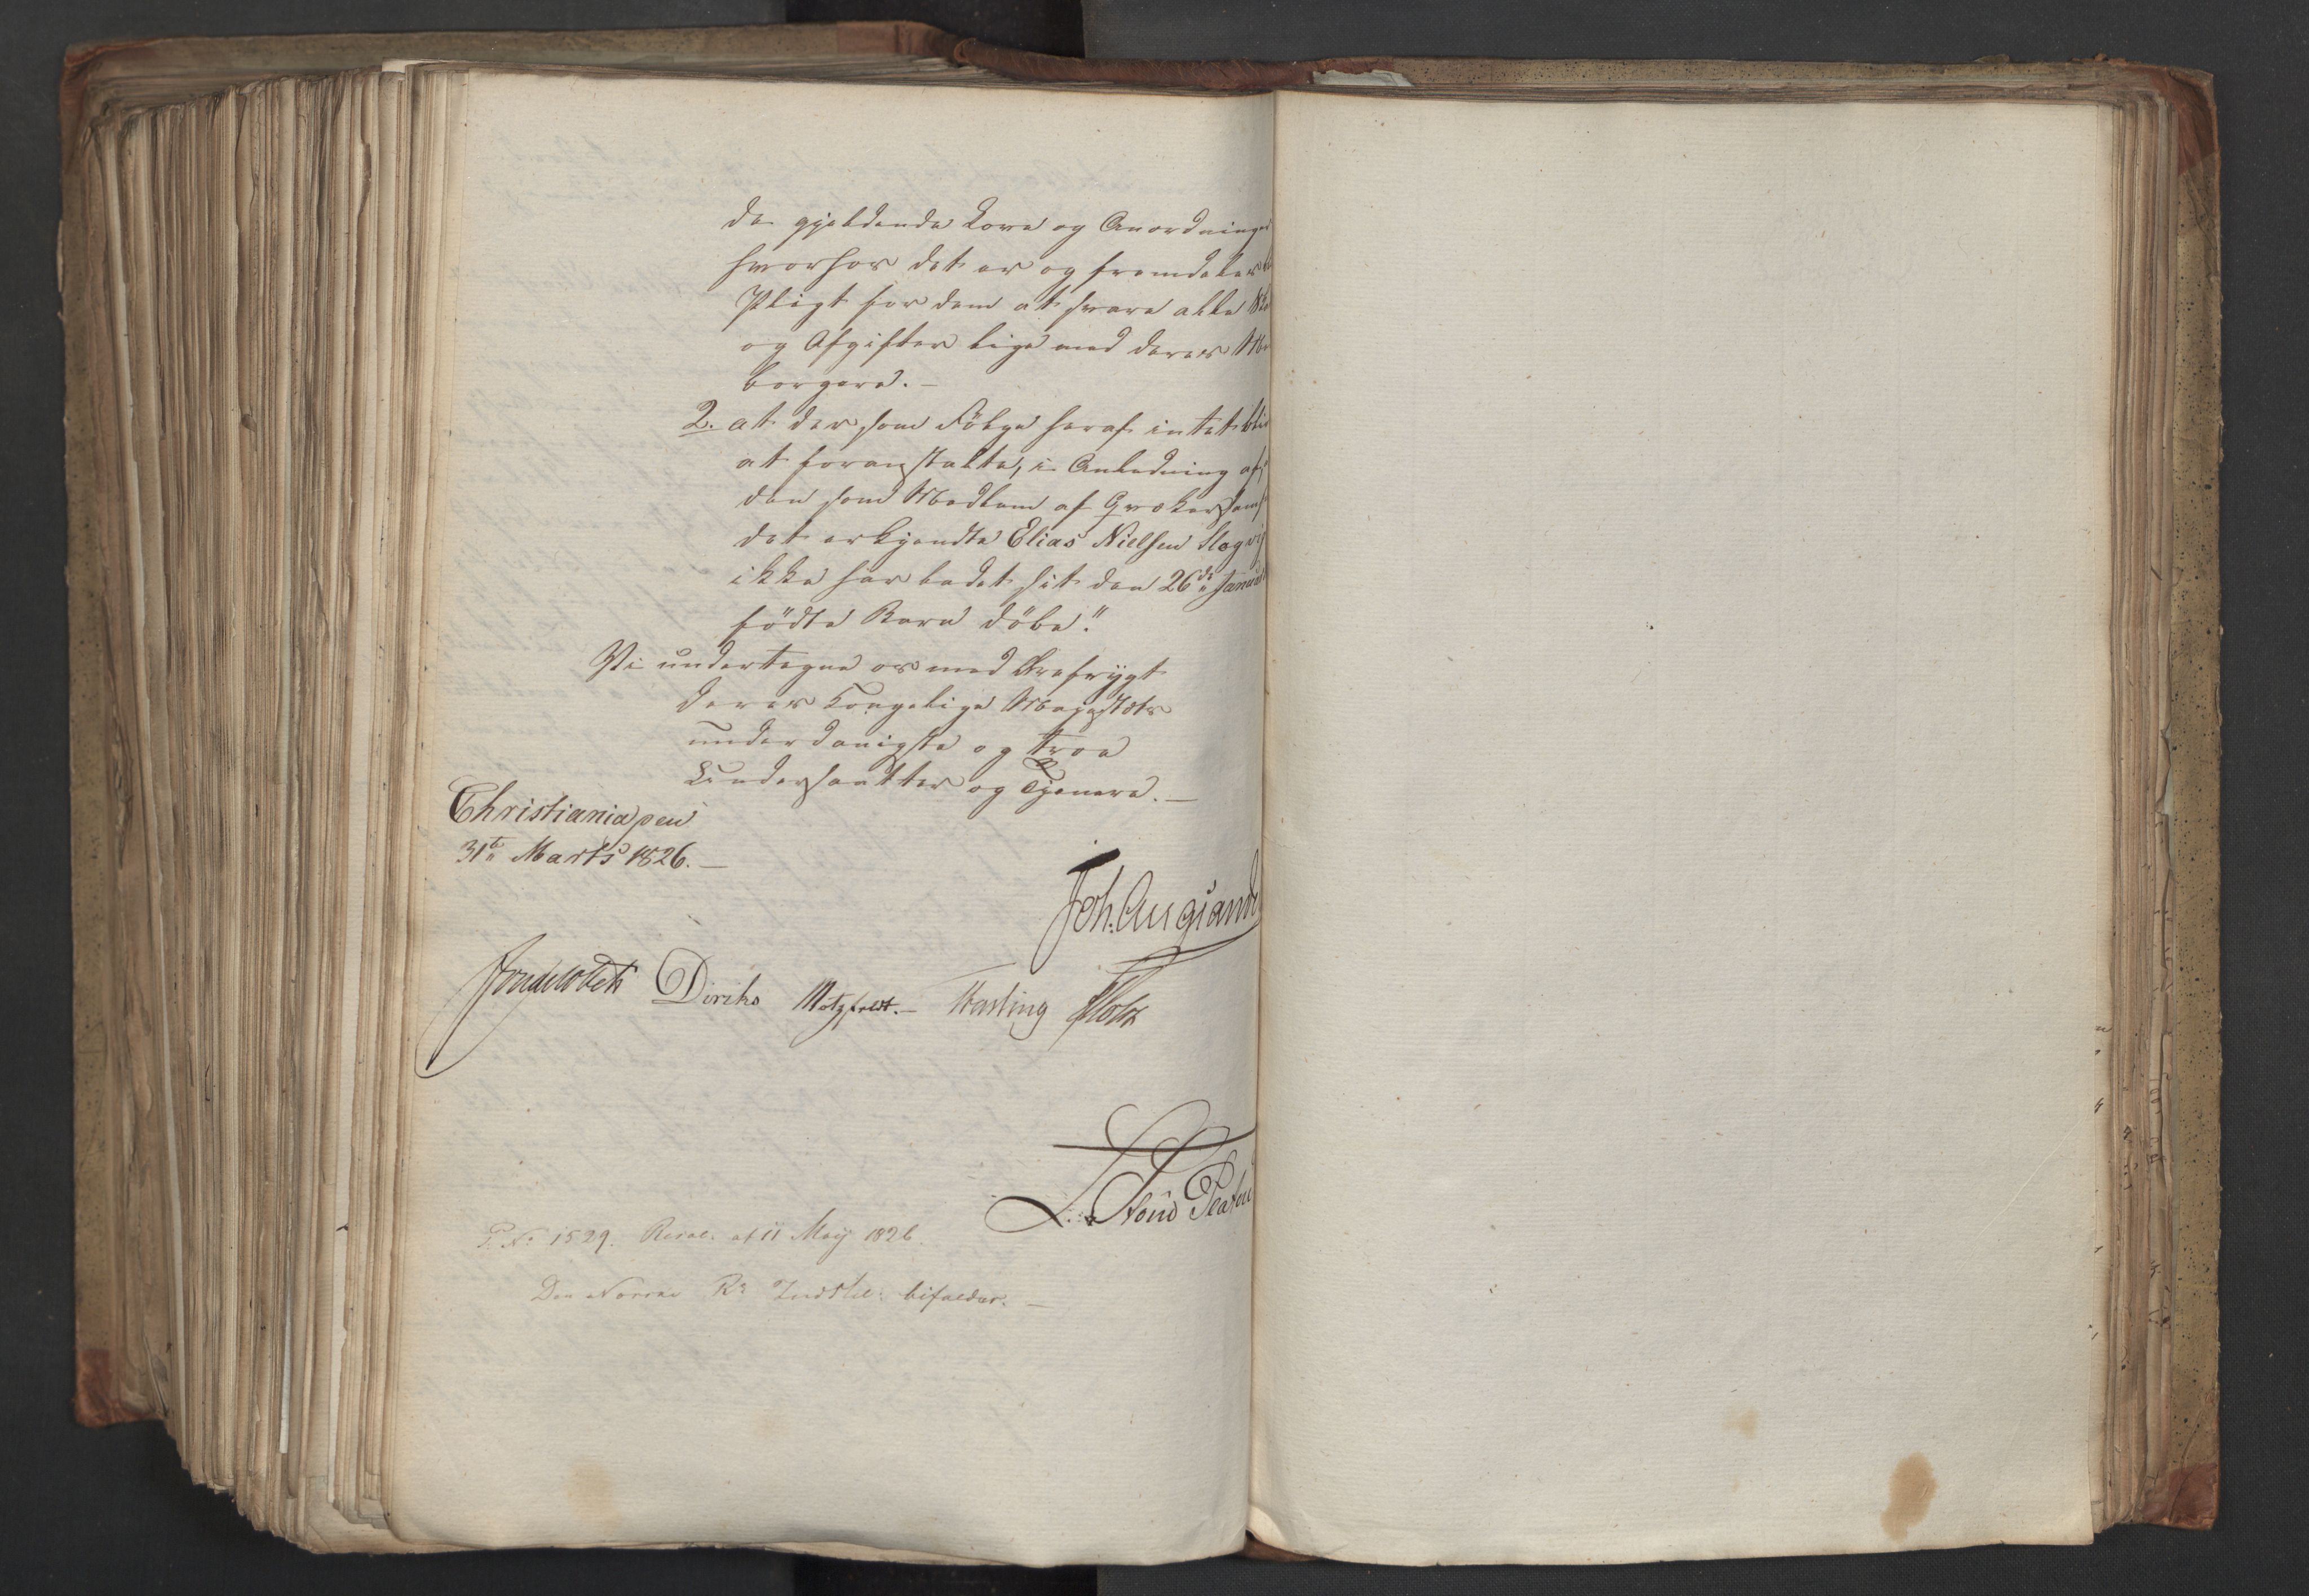 de gjeldende Love og Anordninger
hvorfor det er og fremdeles
Pligt for dem at svare alle
og Afgifter lige med deres Med
borgere. —
2. at der som Følge heraf intet bli
at foranstalte, i Anledning af,
den som Medlem af Qvækersamf
det erkjendte Elias Nielsen
ikke har ladet sit den 26de Januar
fødte Barn døbe."
Vi undertegne os med Ærefrygt
Deres Kongelige Majestæts
underdanigste og troe
Undersaatter og Tjenere. —
Christiania den
31te Marts 1826. —
Joh. Aug. Sande
Diriks Motzfeldt. — Fasting Holst
P. No 1529. Resol. af 11 Maij 1826.
Den Norske Rs Indstil: bifaldes. —